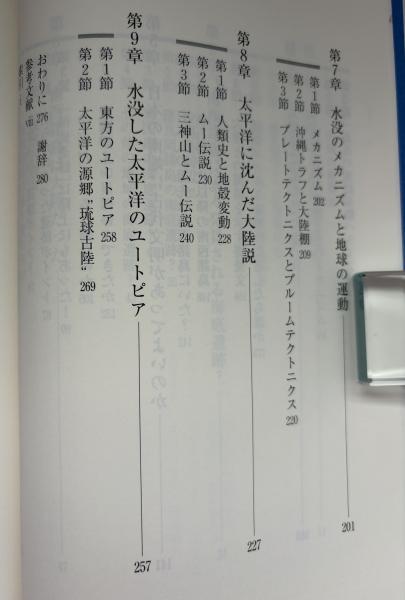 第7章 水没のメカニズムと地球の運動 201
第1節 メカニズム 202
第2節 沖縄トラフと大陸棚 209
第3節 プレートテクトニクスとプルームテクトニクス 220
第8章 太平洋に沈んだ大陸説 227
第1節 人類史と地殻変動 228
第2節 ムー伝説 230
第3節 三神山とムー伝説 240
第9章 水没した太平洋のユートピア 257
第1節 東方のユートピア 258
第2節 太平洋の源郷〝琉球古陸〟 269
おわりに 276 謝辞 280
参考文献 viii